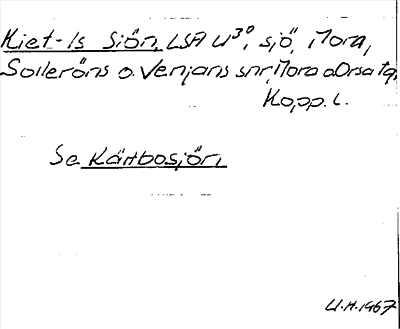 Kiet-ls Siön, LSA U³⁰, sjö, Mora,
Solleröns o. Venjans snr, Mora o Orsa tg,
Kopp. l.
Se Kättbosjön,
U.H. 1967